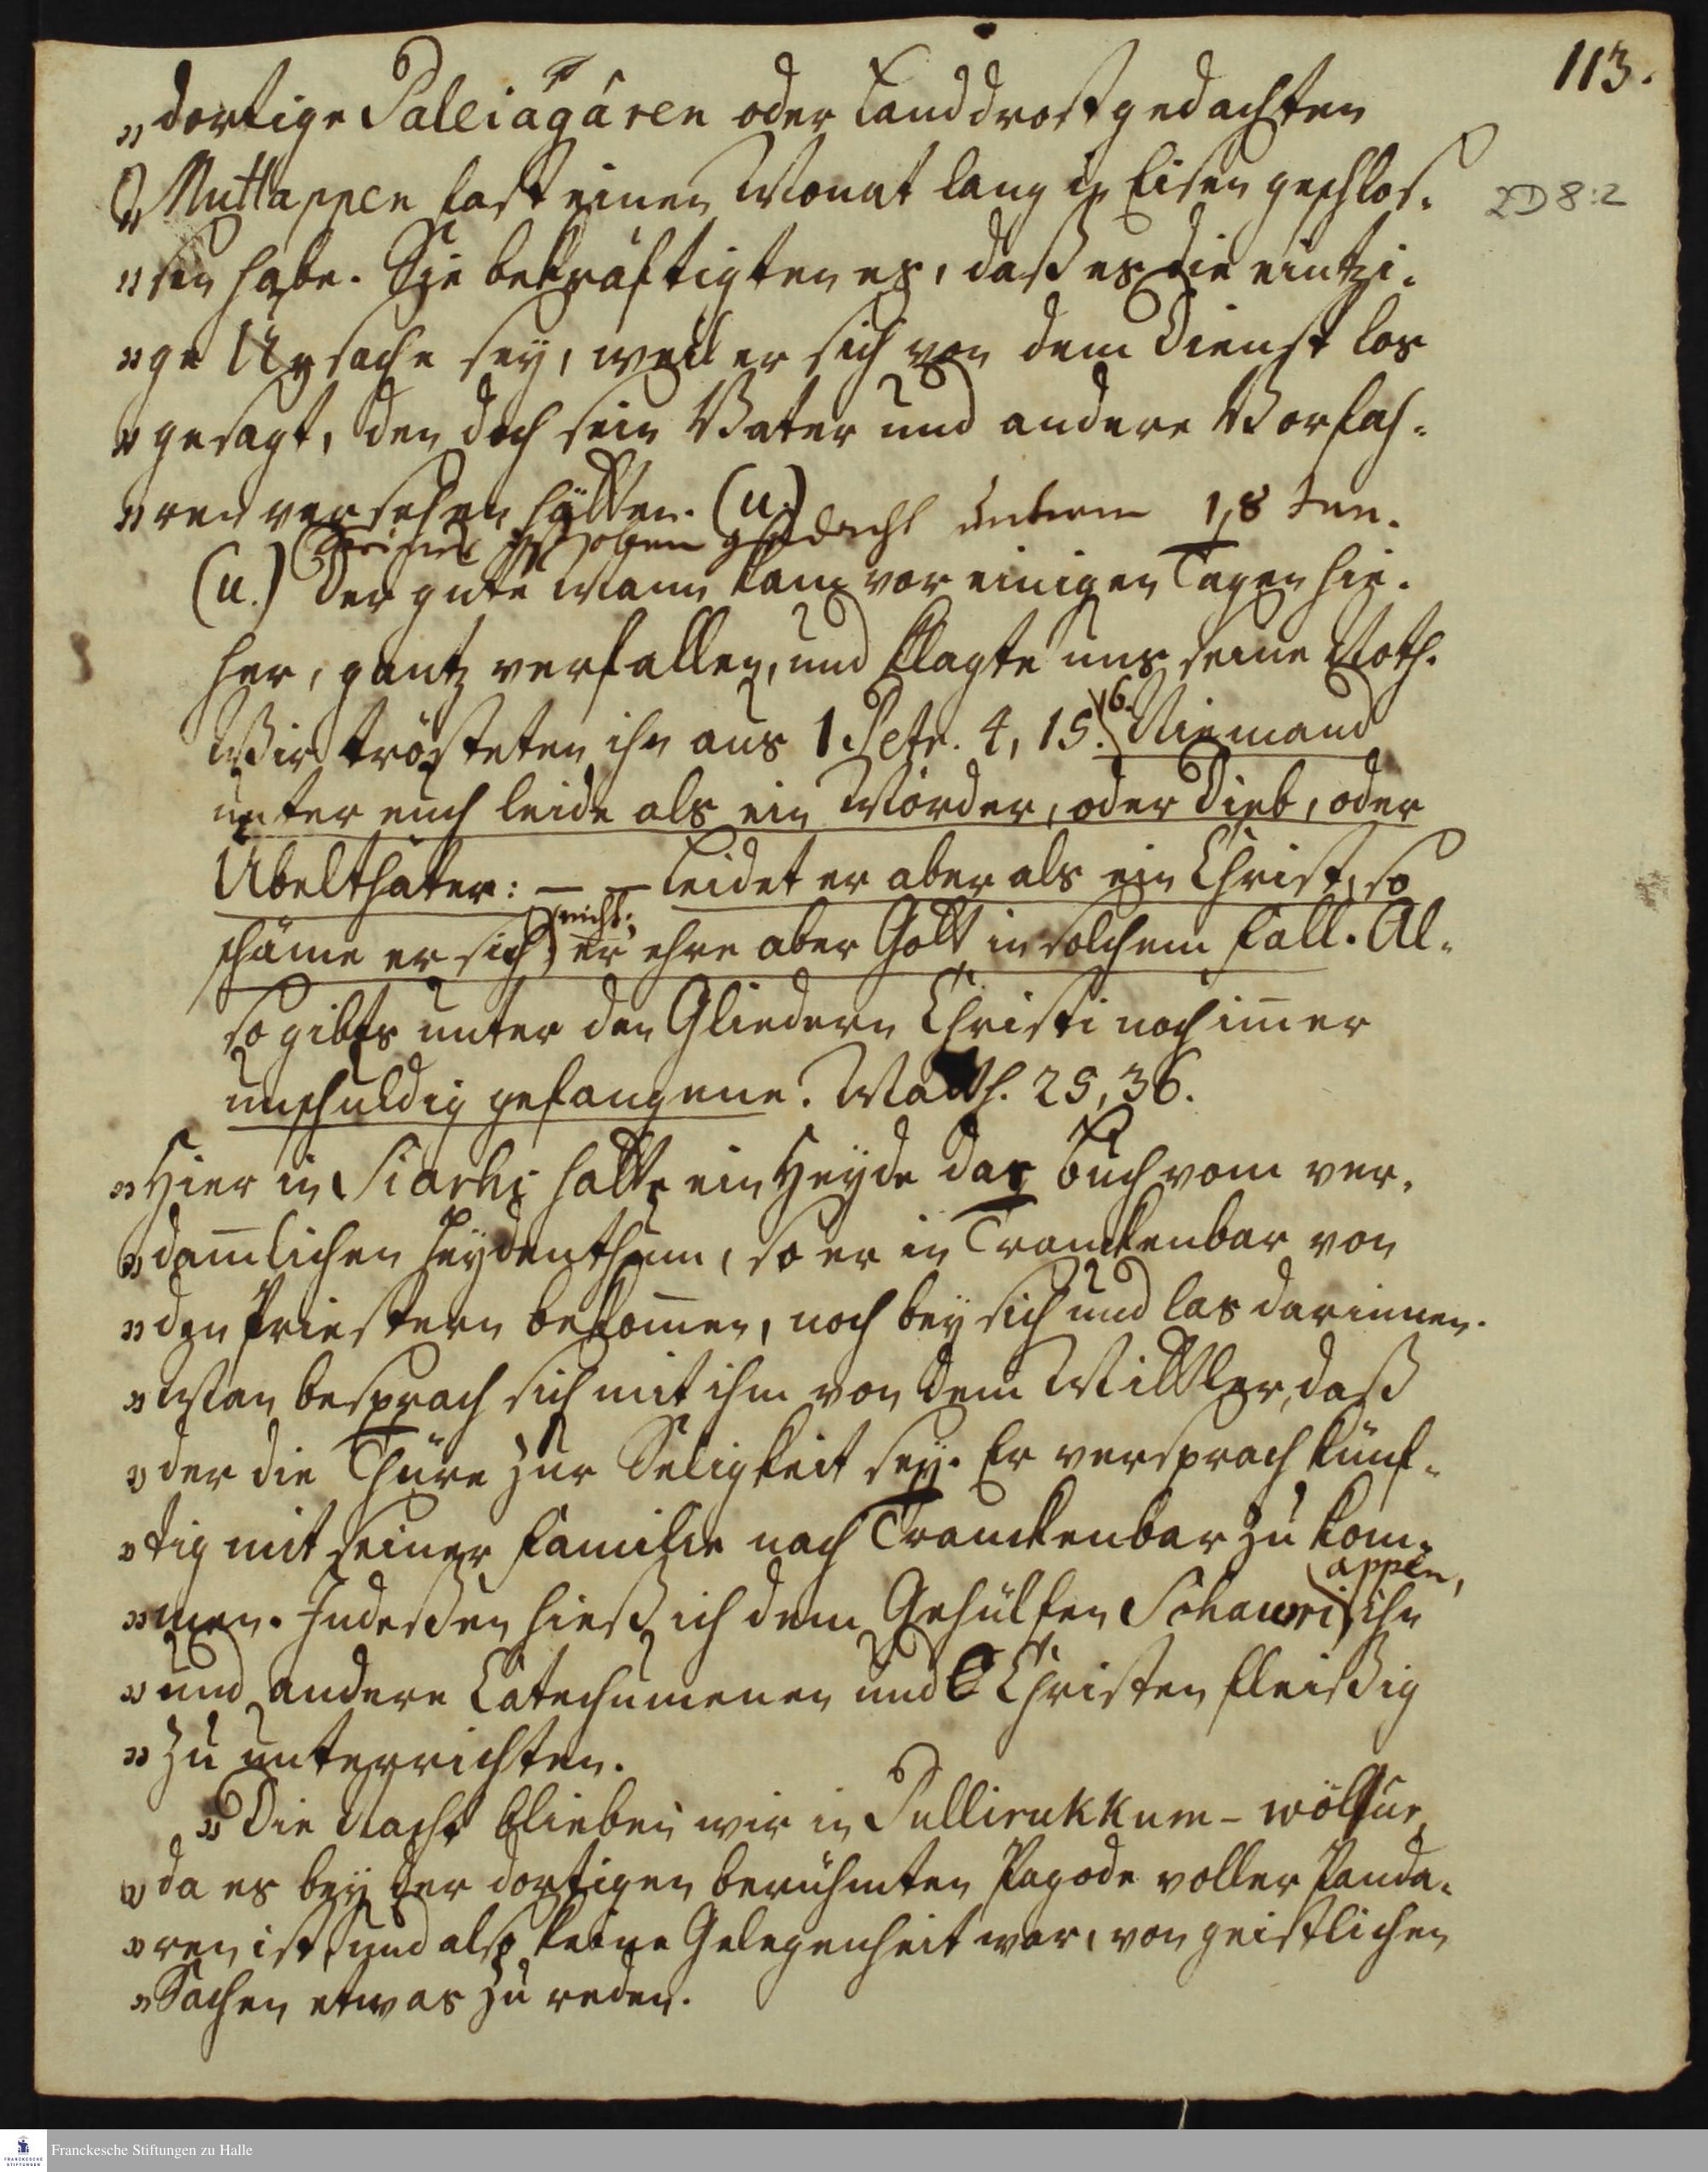 113.
„dortige Paleiagáren oder Landdrost gedachten
„Muttappen fast einen Monat lang in Eisen geschlos-
2D8:2
„sen habe. Sie bekräftigten es, daß es die eintzi-
„ge Ursache sey, weil er sich von dem Dienst los
„gesagt, den doch sein Vater und andere Vorfah-
„ren versehen hätten. (u.)
oben gedacht 18 Jun.
(u.) Der gute Mann kam vor einigen Tagen hie-
her, gantz verfallen, und klagte uns seine Noth.
Wir trösteten ihn aus 1 Petr. 4, 15. 16. Niemand
unter euch leide als ein Mörder, oder Dieb, oder
Übelthäter: — — Leidet er aber als ein Christ, so
schäme er sich nicht; er ehre aber Gott in solchem Fall. Al-
so gibts unter den Gliedern Christi noch im̅er
unschuldig gefangene. Matth. 25, 36.
„Hier in Siarhi hatte ein Heyde das Buch vom ver-
„dam̅lichen Heydenthum, so er in Tranckenbar von
„den Priestern bekom̅en, noch bey sich und las darinnen.
„Man besprach sich mit ihm von dem Mittler, daß
„der die Thüre zur Seligkeit sey. Er versprach künf-
„tig mit seiner Familie nach Tranckenbar zu kom-
„men. Indeßen hieß ich dem Gehülfen Schawriappen, ihn
„und andere Catechumenen und Christen fleißig
„zu unterrichten.
„Die Nacht blieben wir in Pullirukkum-wölur,
„da es bey der dortigen berühmten Pagode voller Panda-
„ren ist, und also keine Gelegenheit war, von geistlichen
„Sachen etwas zu reden.
Franckesche Stiftungen zu Halle